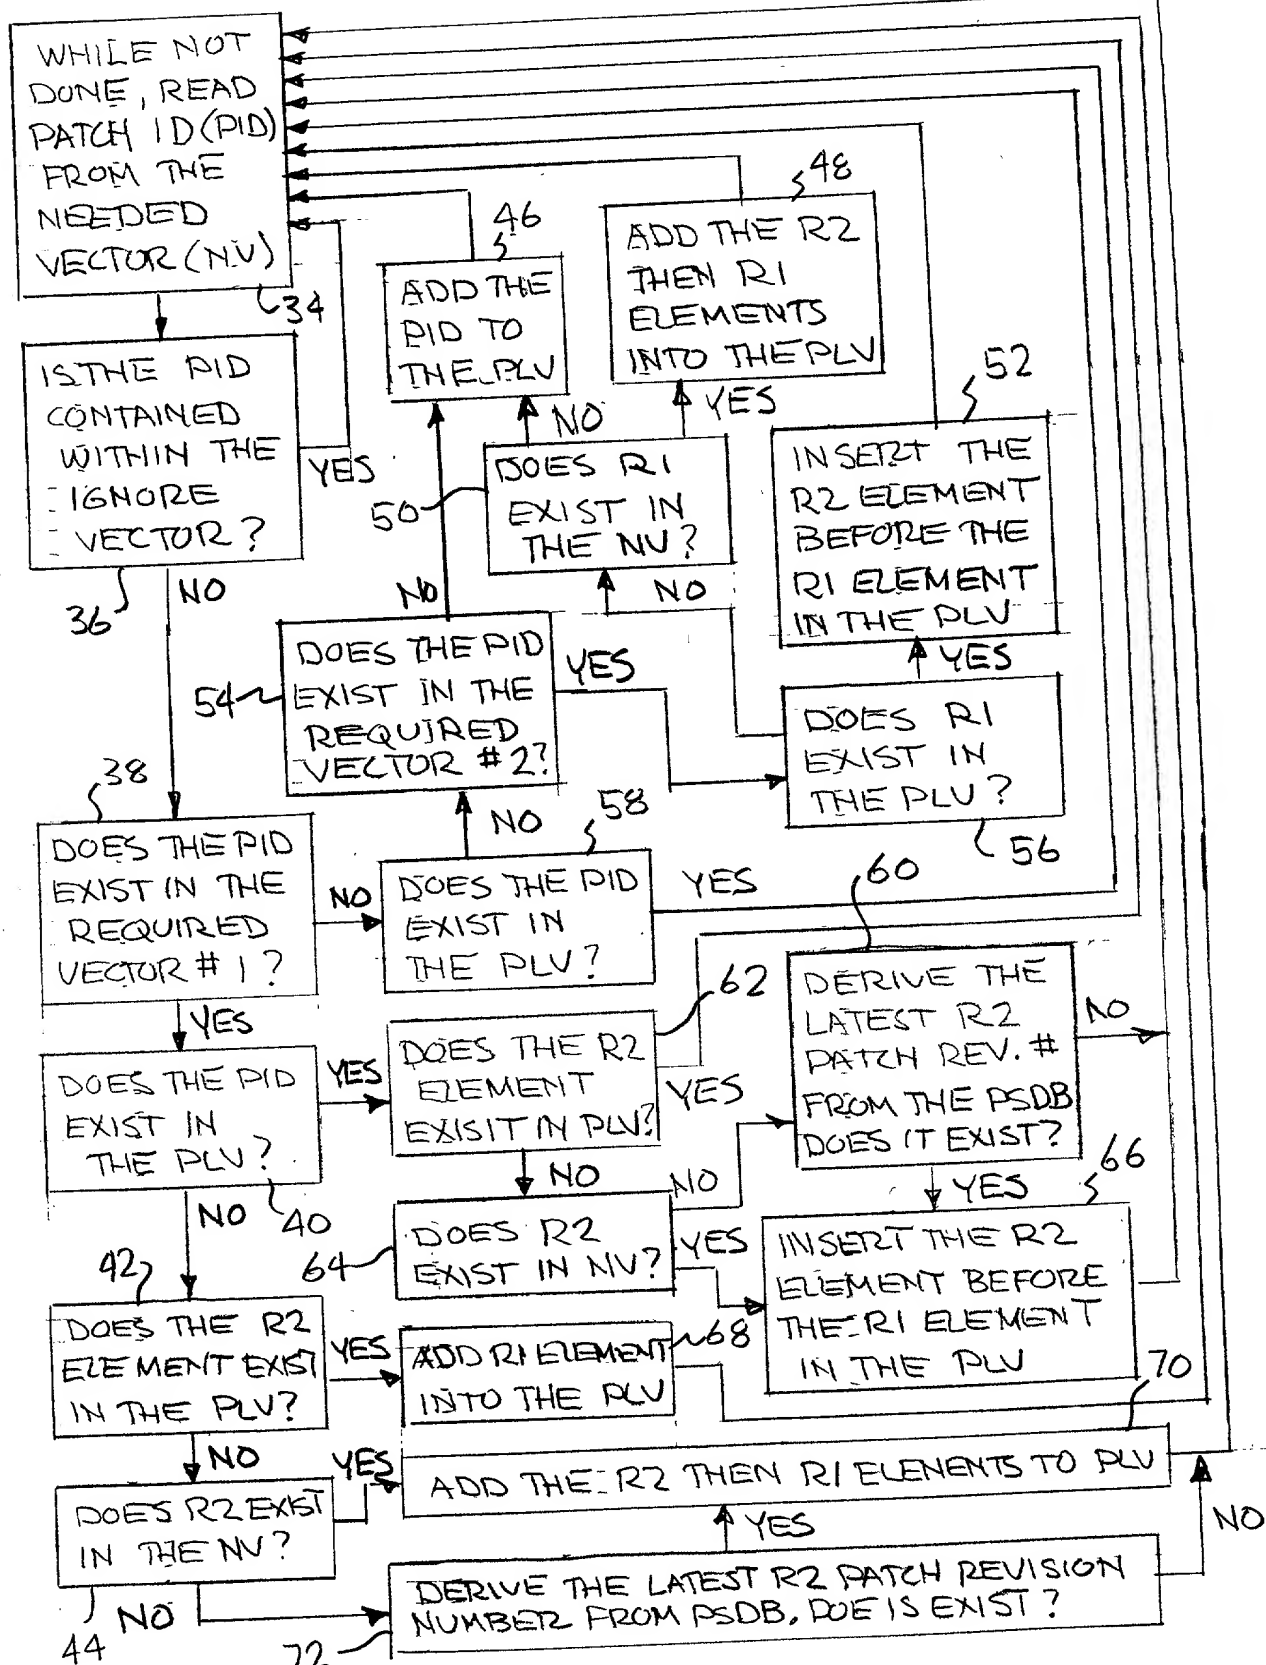 WHILE NOT
DONE, READ
PATCH ID(PID)
FROM THE
NEEDED
VECTOR(NV)
34
IS THE PID
CONTAINED
WITHIN THE
IGNORE
VECTOR?
YES
NO
36
46
ADD THE
PID TO
THE PLV
48
ADD THE R2
THEN R1
ELEMENTS
INTO THE PLV
NO
YES
50
DOES R1
EXIST IN
THE NV?
NO
52
INSERT THE
R2 ELEMENT
BEFORE THE
R1 ELEMENT
IN THE PLV
YES
NO
54
DOES THE PID
EXIST IN THE
REQUIRED
VECTOR #2?
YES
DOES R1
EXIST IN
THE PLV?
56
NO
38
DOES THE PID
EXIST IN THE
REQUIRED
VECTOR #1?
NO
YES
58
DOES THE PID
EXIST IN
THE PLV?
YES
60
DERIVE THE
LATEST R2
PATCH REV. #
FROM THE PSDB
DOES IT EXIST?
NO
YES
DOES THE PID
EXIST IN
THE PLV?
YES
NO
40
62
DOES THE R2
ELEMENT
EXISIT IN PLV?
YES
NO
64
DOES R2
EXIST IN NV?
NO
YES
66
INSERT THE R2
ELEMENT BEFORE
THE R1 ELEMENT
IN THE PLV
42
DOES THE R2
ELEMENT EXIST
IN THE PLV?
YES
NO
68
ADD R1 ELEMENT
INTO THE PLV
70
ADD THE R2 THEN R1 ELENENTS TO PLV
YES
DOES R2 EXIST
IN THE NV?
YES
NO
44
DERIVE THE LATEST R2 PATCH REVISION
NUMBER FROM PSDB. DOE IS EXIST?
NO
72